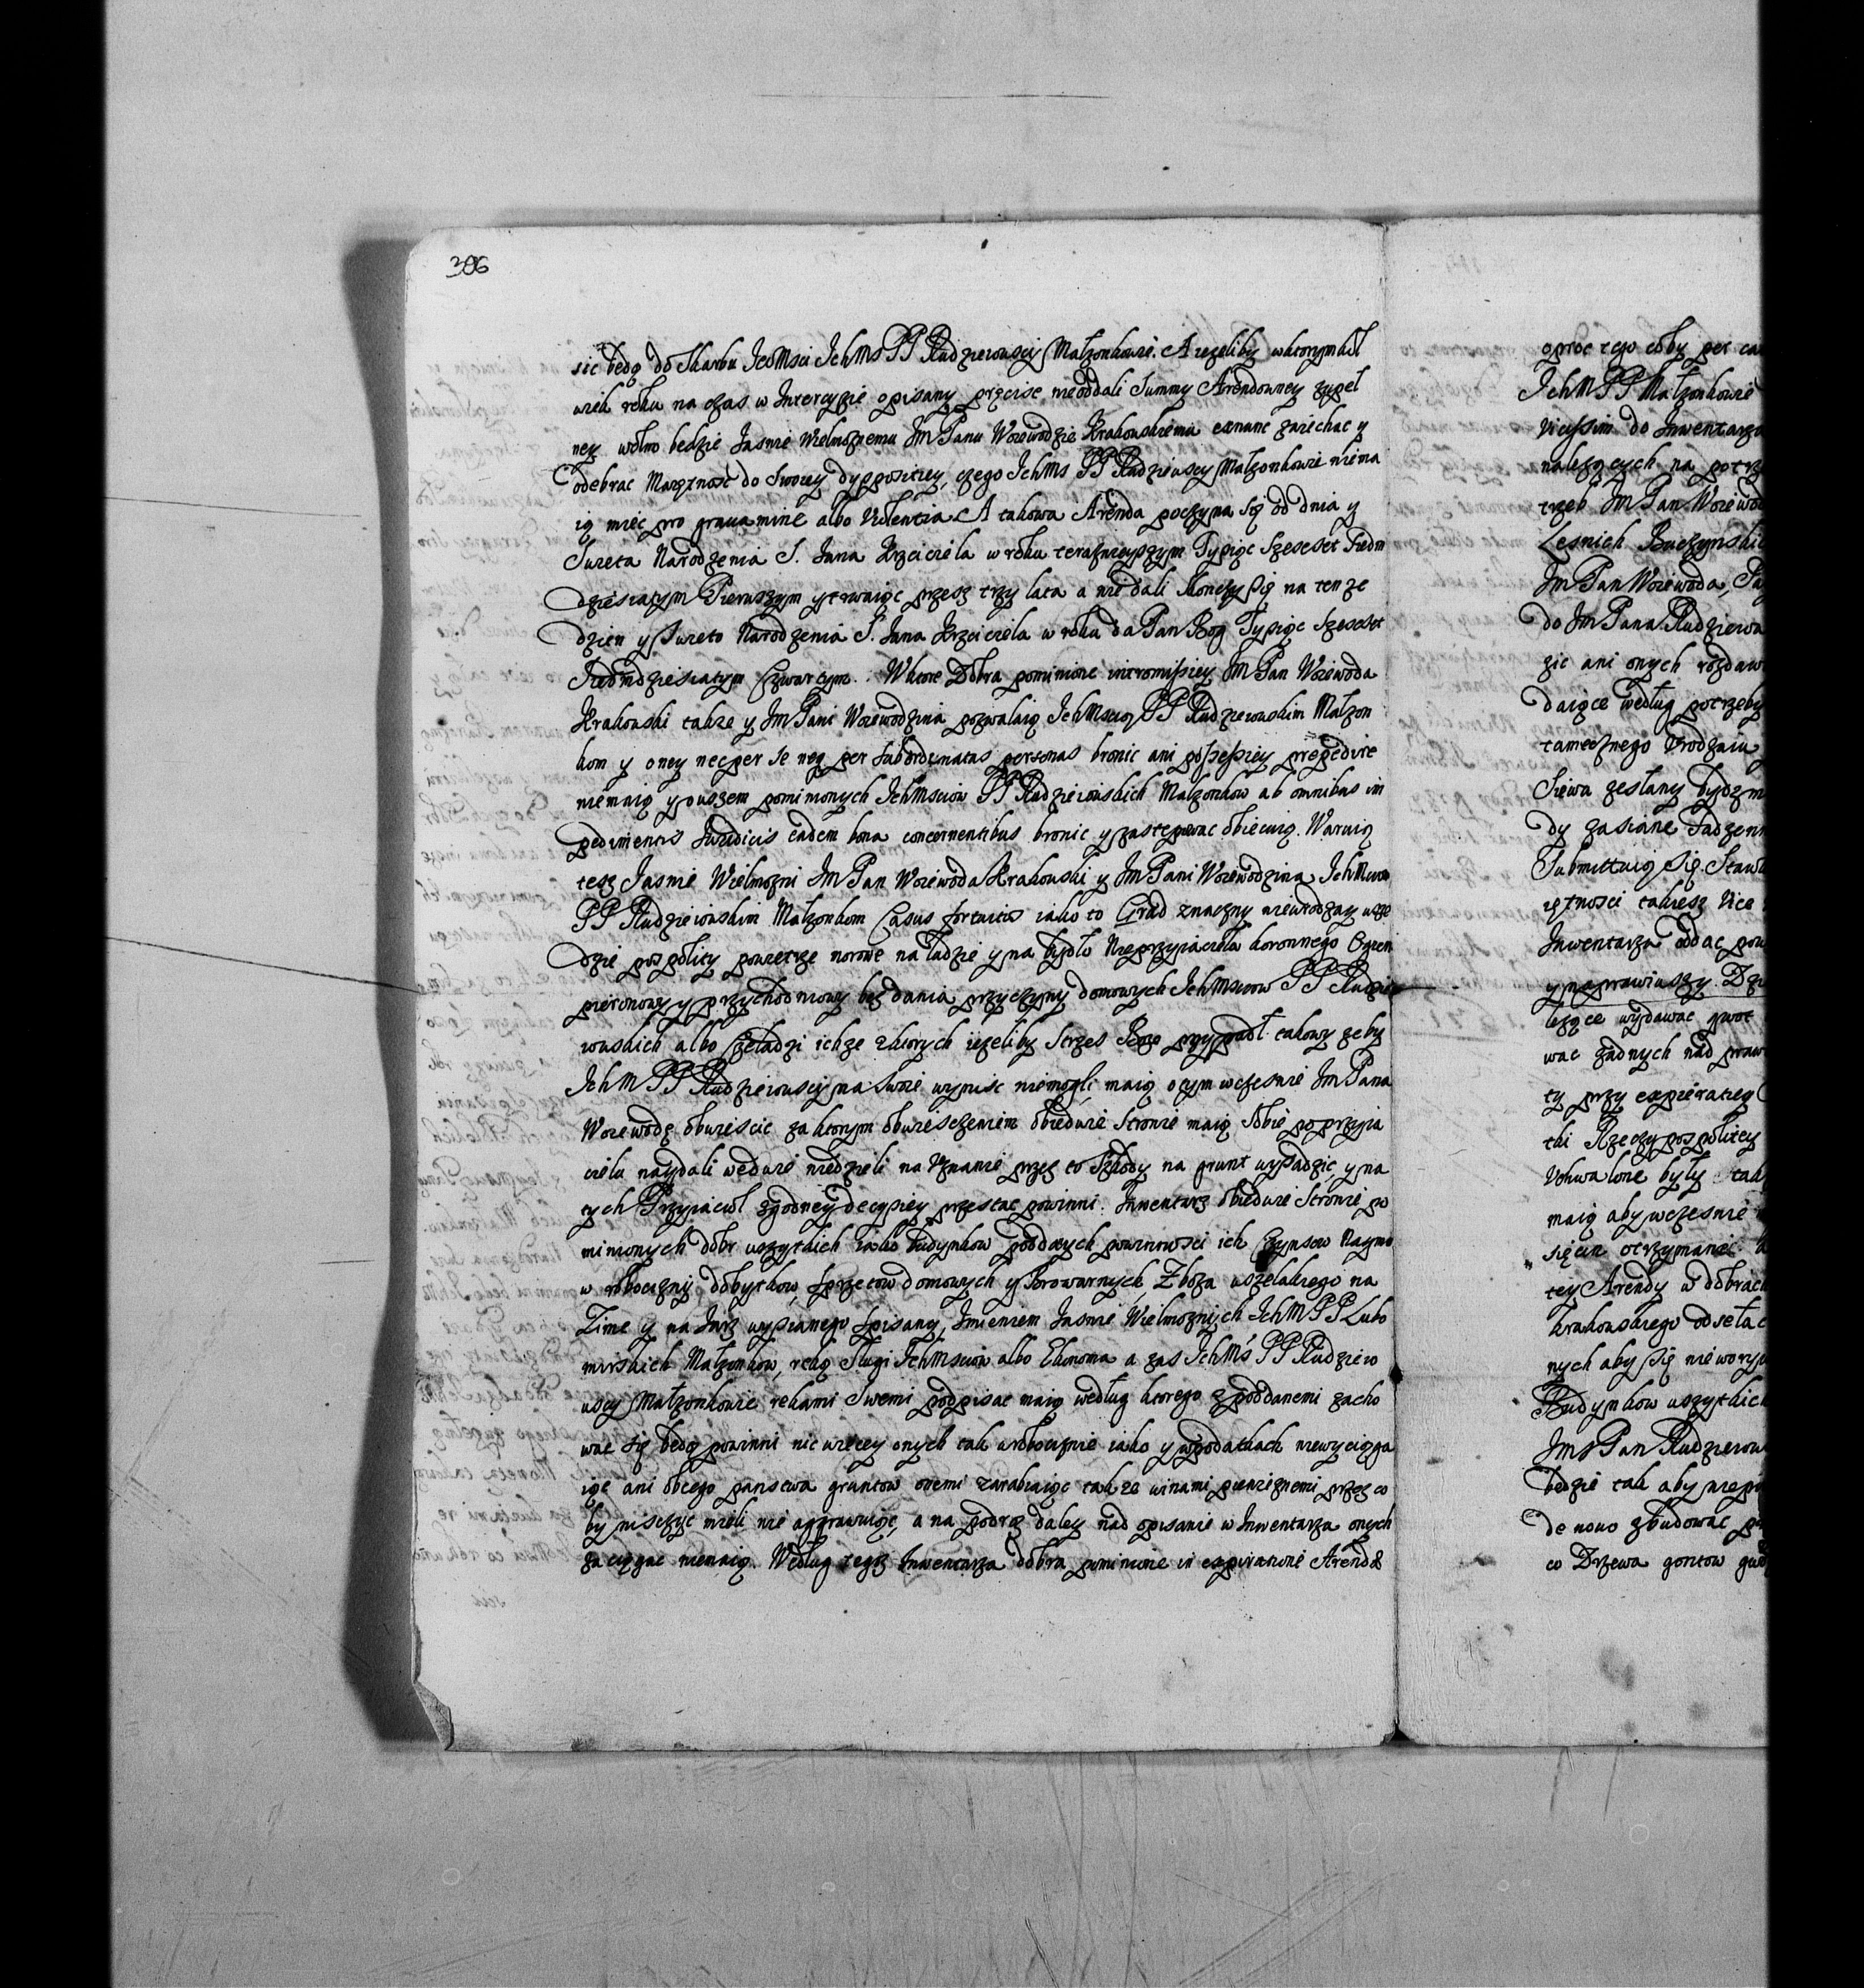 306
sic będą do Skarbu JeoMsci Ich Ms PP Rudzieiouscy Małzonkowie. A iezeliby wktorymkol
wiek roku na czas w Intercyzie opisany precise nieoddali Summy Arendowney zupeł
ney wolno bedzie Jasnie Wielmoznemu Jm Panu Woiewodzie Krakowskiemu zaiechac y
odebrac Maiętnosc do Swoiey dyspositiey, czego IchMs PP Rudzieiuscy Małzonkowie niema
ią miec pro grauamine albo Violentia. A takowa Arenda poczyna się od dnia y
Swieta Narodzenia S. Jana Krzciciela w roku teraznieyszym Tysiąc Szescset Siedm
dziesiatym Pierwszym y trwaiąc przesz trzy lata a nie dali skonczy się na tenze
dzien y Swieto Narodzenia S. Jana Krzciciela w roku da Pan Bog Tysiąc Szescset
Siedmdziesiatym Czwartym. Wktore Dobra pominione intromissiey Jm Pan Woiewoda
Krakowski takze y Jm Pani Woiewodzina pozwalaią IchMsciom PP Rudzieiowskim Małzon
kom y oney nec per se neq per subordynatas personas bronic ani possessiey prepedire
niemaią y owszem pominionych IchMsciow PP Rudzieiowskich Małzonkow ab omnibus im
pedimentis iuridicis eadem bona concernentibus bronic y zastępowac obiecuią. Waruią
tesz Jasnie Wielmozni Jm Pan Woiewoda Krakowski y Jm Pani Woiewodzina IchMsciom
PP Rudzieiowskim Małzonkom Casus fortuitos iako to Grad znaczny nieurodzay wszę
dzie pospolity powietrze morowe na ludzie y na bydło Nieprzyiaciela koronnego Ogien
pieronowy y przychodniowy bez dania przyczyny domowych IchMsciow PP Rudzie
iowskich albo Czeladzi ichze zktorych iezeliby Strzes Boze przypadł takowy zeby
IchM PP Rudzieiouscy na Swoie wyniść niemogli, maią oczym wczesnie Jm Pana
Woiewodę obwieścic za ktorym obwiesczeniem obiedwie Stronie maią Sobie po przyia
cielu naydali wedwie niedzieli na Vznanie przez to Szkody na grunt wysadzic, y na
tych Przyiacioł zgodney decysiey przestac powinni. Inwentarz obiedwie Stronie po
minionych dobr wszytkich iako budynkow poddanych powinnosci ich Czynszow Naymo
w robocizny dobytkow, sprzetow domowych y Browarnych, Zboza wszelakiego na
Zime y na Jarz wysianego spisany, Imieniem Jasnie Wielmoznych IchM PP Lubo
mirskich Małzonkow, ręką Sługi IchMsciow albo Ekonoma a zas IchMs PP Rudzieio
uscy Małzonkowie rekami Swemi podpisac maią według ktorego z poddanemi zacho
wac się będą powinni nic wiecey onych tak wrobociznie iako y wpodatkach niewyciąga
iąc ani obcego panstwa gruntow onemi zarabiaiąc takze winami pienięznemi przez co
by nisczyc mieli nie aggrawuiąc, a na podroz daley nad opisanie w Inwentarzu onych
zaciągac niemaią. Według tegoz Inwentarza dobra pominione in expiratione Arendæ
oproc tego coby per ca
IchM PP Małzonkowie
Vicissim do Inwentarza
nalezących na potrz
trzeb Jm Pan Woiewod
Lesnich Buczynskie
Jm Pan Woiewoda,
do Jm Pana Rudzieiow
zic ani onych rozdaw
daiące według potrzeby
tamecznego Vrodzaiu
Siewa zesłany bydz m
dy zasiane
Submittuią się Staw
iętnosci takiesz Vice
Inwentarza oddac pow
y naprawiwszy.
lezące wydawac
wac zadnych nad praw
ty przy expiratiey
tki Rzeczypospolitey
Vchwalone były tak
maią aby wczesnie
sięcin otrzymanie
tey Arendy w dobrach
krakowskiego odsełac
nych aby się nie
Budynkow wszytkich
Jms Pan Rudzieiow
bedzie tak aby
de nouo zbudowac
co Drzewa gontow